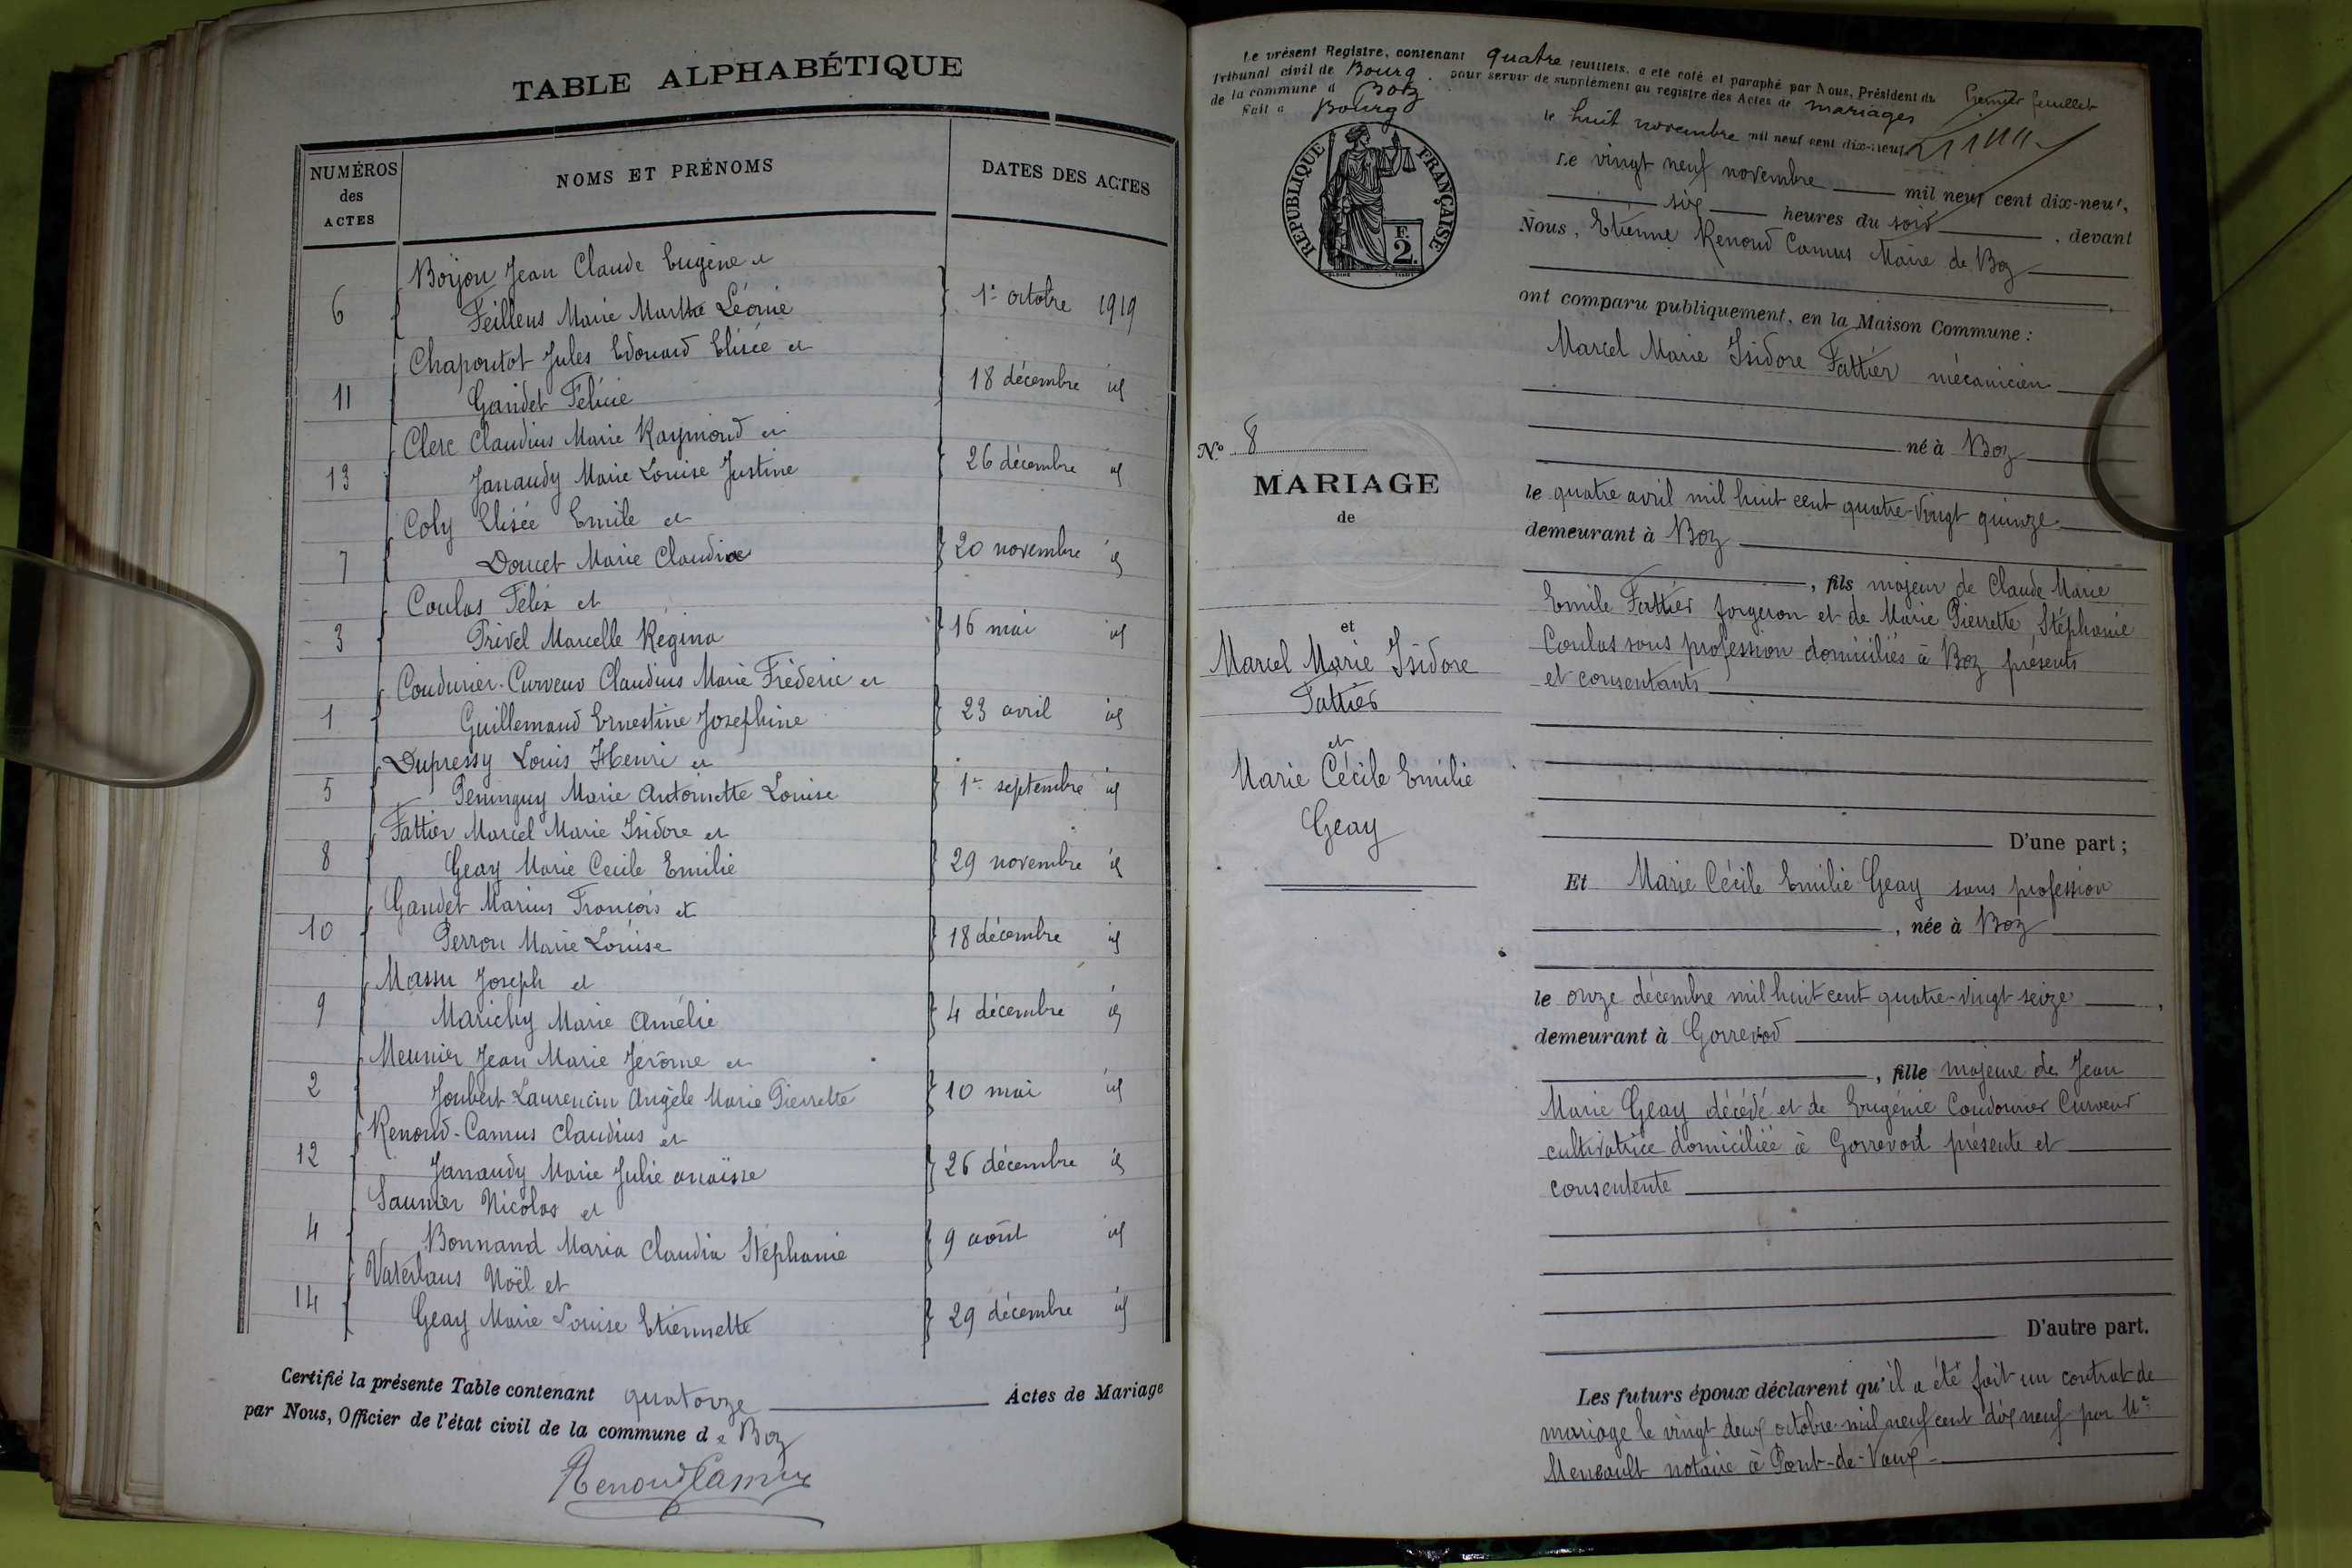 TABLE ALPHABÉTIQUE
NUMÉROS des ACTES
NOMS ET PRÉNOMS
DATES DES ACTES
Borjon Jean Claude Eugène et
6 Feillens Marie Martha Léonie 1er octobre 1919
Chapoutot Jules Edouard Elisée et
11 Gaudet Félicie 18 décembre id
Clerc Claudius Marie Raymond et
13 Janaudy Marie Louise Justine 26 décembre id
Coly Elisée Emile et
7 Doucet Marie Claudia 20 novembre id
Coulas Félix et
3 Privel Marcelle Régina 16 mai id
Coudurier-Curveur Claudius Marie Fréderic et
1 Guillemaud Ernestine Joséphine 23 avril id
Dupressy Louis Henri et
5 Peninguy Marie Antoinette Louise 1er septembre id
Fattier Marcel Marie Isidore et
8 Geay Marie Cecile Emilie 29 novembre id
Gaudet Marius François et
10 Perron Marie Louise 18 décembre id
Massu Joseph et
9 Marichy Marie Amélie 4 décembre id
Meunier Jean Marie Jérôme et
2 Joubert-Laurencin Angèle Marie Pierrette 10 mai id
Renoud-Camus Claudius et
12 Janaudy Marie Julie anaïsse 26 décembre id
Saunier Nicolas et
4 Bonnand Maria Claudia Stéphanie 9 août id
Vaterlaus Noël et
14 Geay Marie Louise Etiennette 29 décembre id
Certifié la présente Table contenant quatorze Actes de Mariage
par Nous, Officier de l'état civil de la commune de Boz
Renoud Camus
Le présent Registre, contenant quatre feuillets, a été coté et paraphé par Nous, Président du
Tribunal civil de Bourg. pour servir de supplément au registre des Actes de mariages
de la commune d Boz
Fait à Bourg le huit novembre mil neuf cent dix-neuf
Premier feuillet
RÉPUBLIQUE FRANÇAISE
F. 2.
No 8
MARIAGE
de
et
Marcel Marie Isidore
Fattier
et
Marie Cécile Emilie
Geay
Le vingt neuf novembre mil neuf cent dix-neuf,
six heures du soir, devant
Nous, Etienne Renoud Camus Maire de Boz
ont comparu publiquement, en la Maison Commune :
Marcel Marie Isidore Fattier mécanicien
né à Boz
le quatre avril mil huit cent quatre-vingt quinze
demeurant à Boz
, fils majeur de Claude Marie
Emile Fattier forgeron et de Marie Pierrette Stéphanie
Coulas sans profession domiciliés à Boz présents
et consentants
D'une part ;
Et Marie Cécile Emilie Geay sans profession
, née à Boz
le onze décembre mil huit cent quatre-vingt seize,
demeurant à Gorrevod
, fille majeure de Jean
Marie Geay décédé et de Eugénie Coudourier Curveur
cultivatrice domiciliée à Gorrevod présente et
consentente
D'autre part.
Les futurs époux déclarent qu'il a été fait un contrat de
mariage le vingt deux octobre mil neuf cent dix neuf par Me
notaire à Pont-de-Vaux